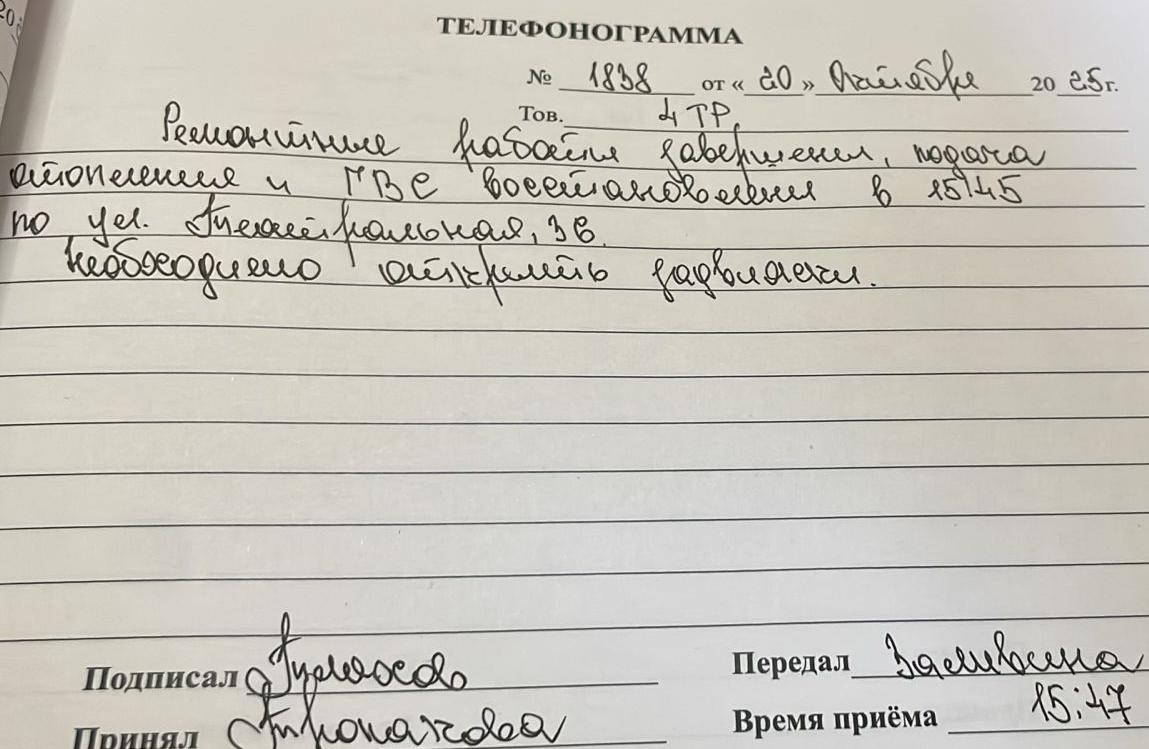 ТЕЛЕФОНОГРАММА
№ 1838 от «20» 2025г.
Тов. 4 ТР.
Ремонтные работы завершены, подача
отопления и ГВС восстановлены в 15:45
по ул. Театральная, 3в.
Необходимо открыть задвижки.
Подписал
Передал Заливина
Принял
Время приёма 15:47